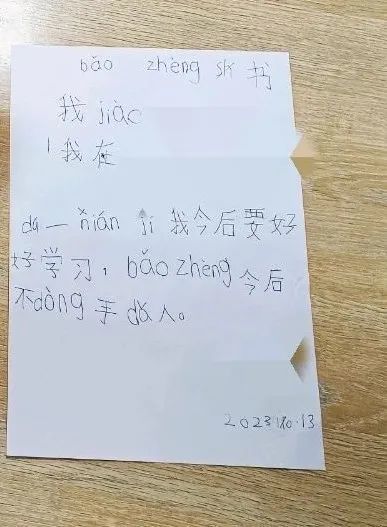 bǎo zhèng sh 书
我 jiào
1 我 在
dú 一 nián jí 我今后要好
好学习，bǎo zhèng 今后
不dòng 手 dǎ 人。
2023.10.13